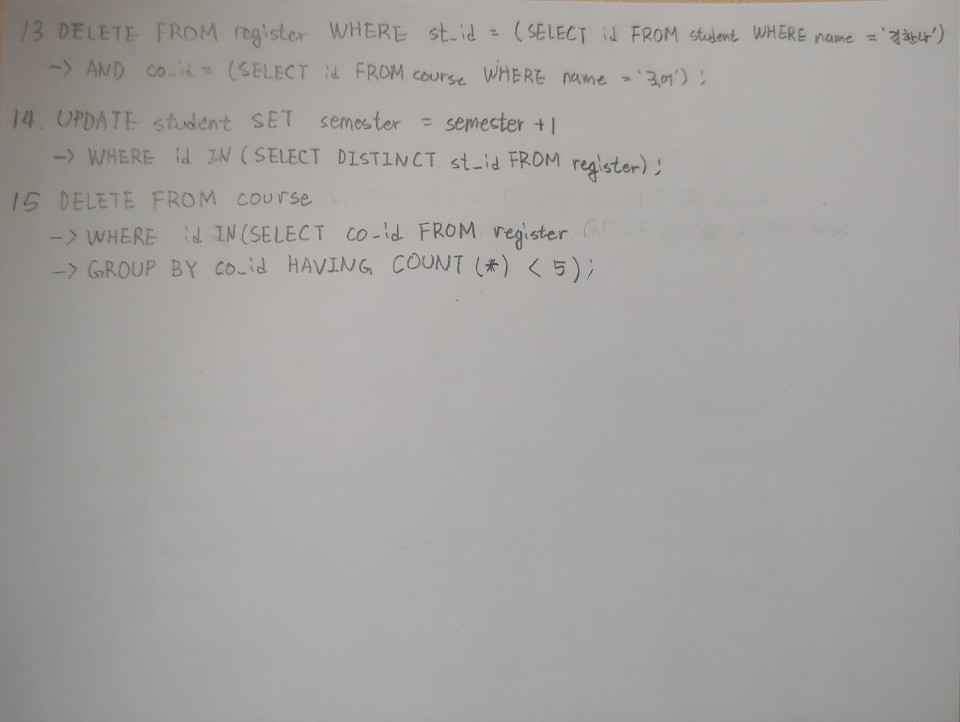 13. DELETE FROM register WHERE st_id = (SELECT id FROM student WHERE name = '김하나')
-> AND co_id = (SELECT id FROM course WHERE name = '국어');
14. UPDATE student SET semester = semester +1
-> WHERE id IN (SELECT DISTINCT st_id FROM register);
15 DELETE FROM course
-> WHERE id IN(SELECT co_id FROM register
-> GROUP BY co_id HAVING COUNT (*) < 5);